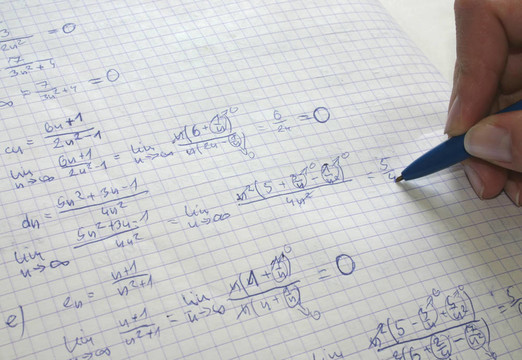 3/2n² = 0
7/3n²+4
∞ = 7/3n²+4 = 0
cn = 6n+1/2n²-1
lim n→∞ 6n+1/2n²-1 = lim n→∞ n(6+1/n)/n(2n-1/n) = 6/2n = 0
dn = 5n²+3n-1/4n²
lim n→∞ 5n²+3n-1/4n² = lim n→∞ n²(5+3/n-1/n²)/4n² = 5/4
e) en = n+1/n²+1
lim n→∞ n+1/n²+1 = lim n→∞ n(1+1/n)/n(n+1/n) = 0